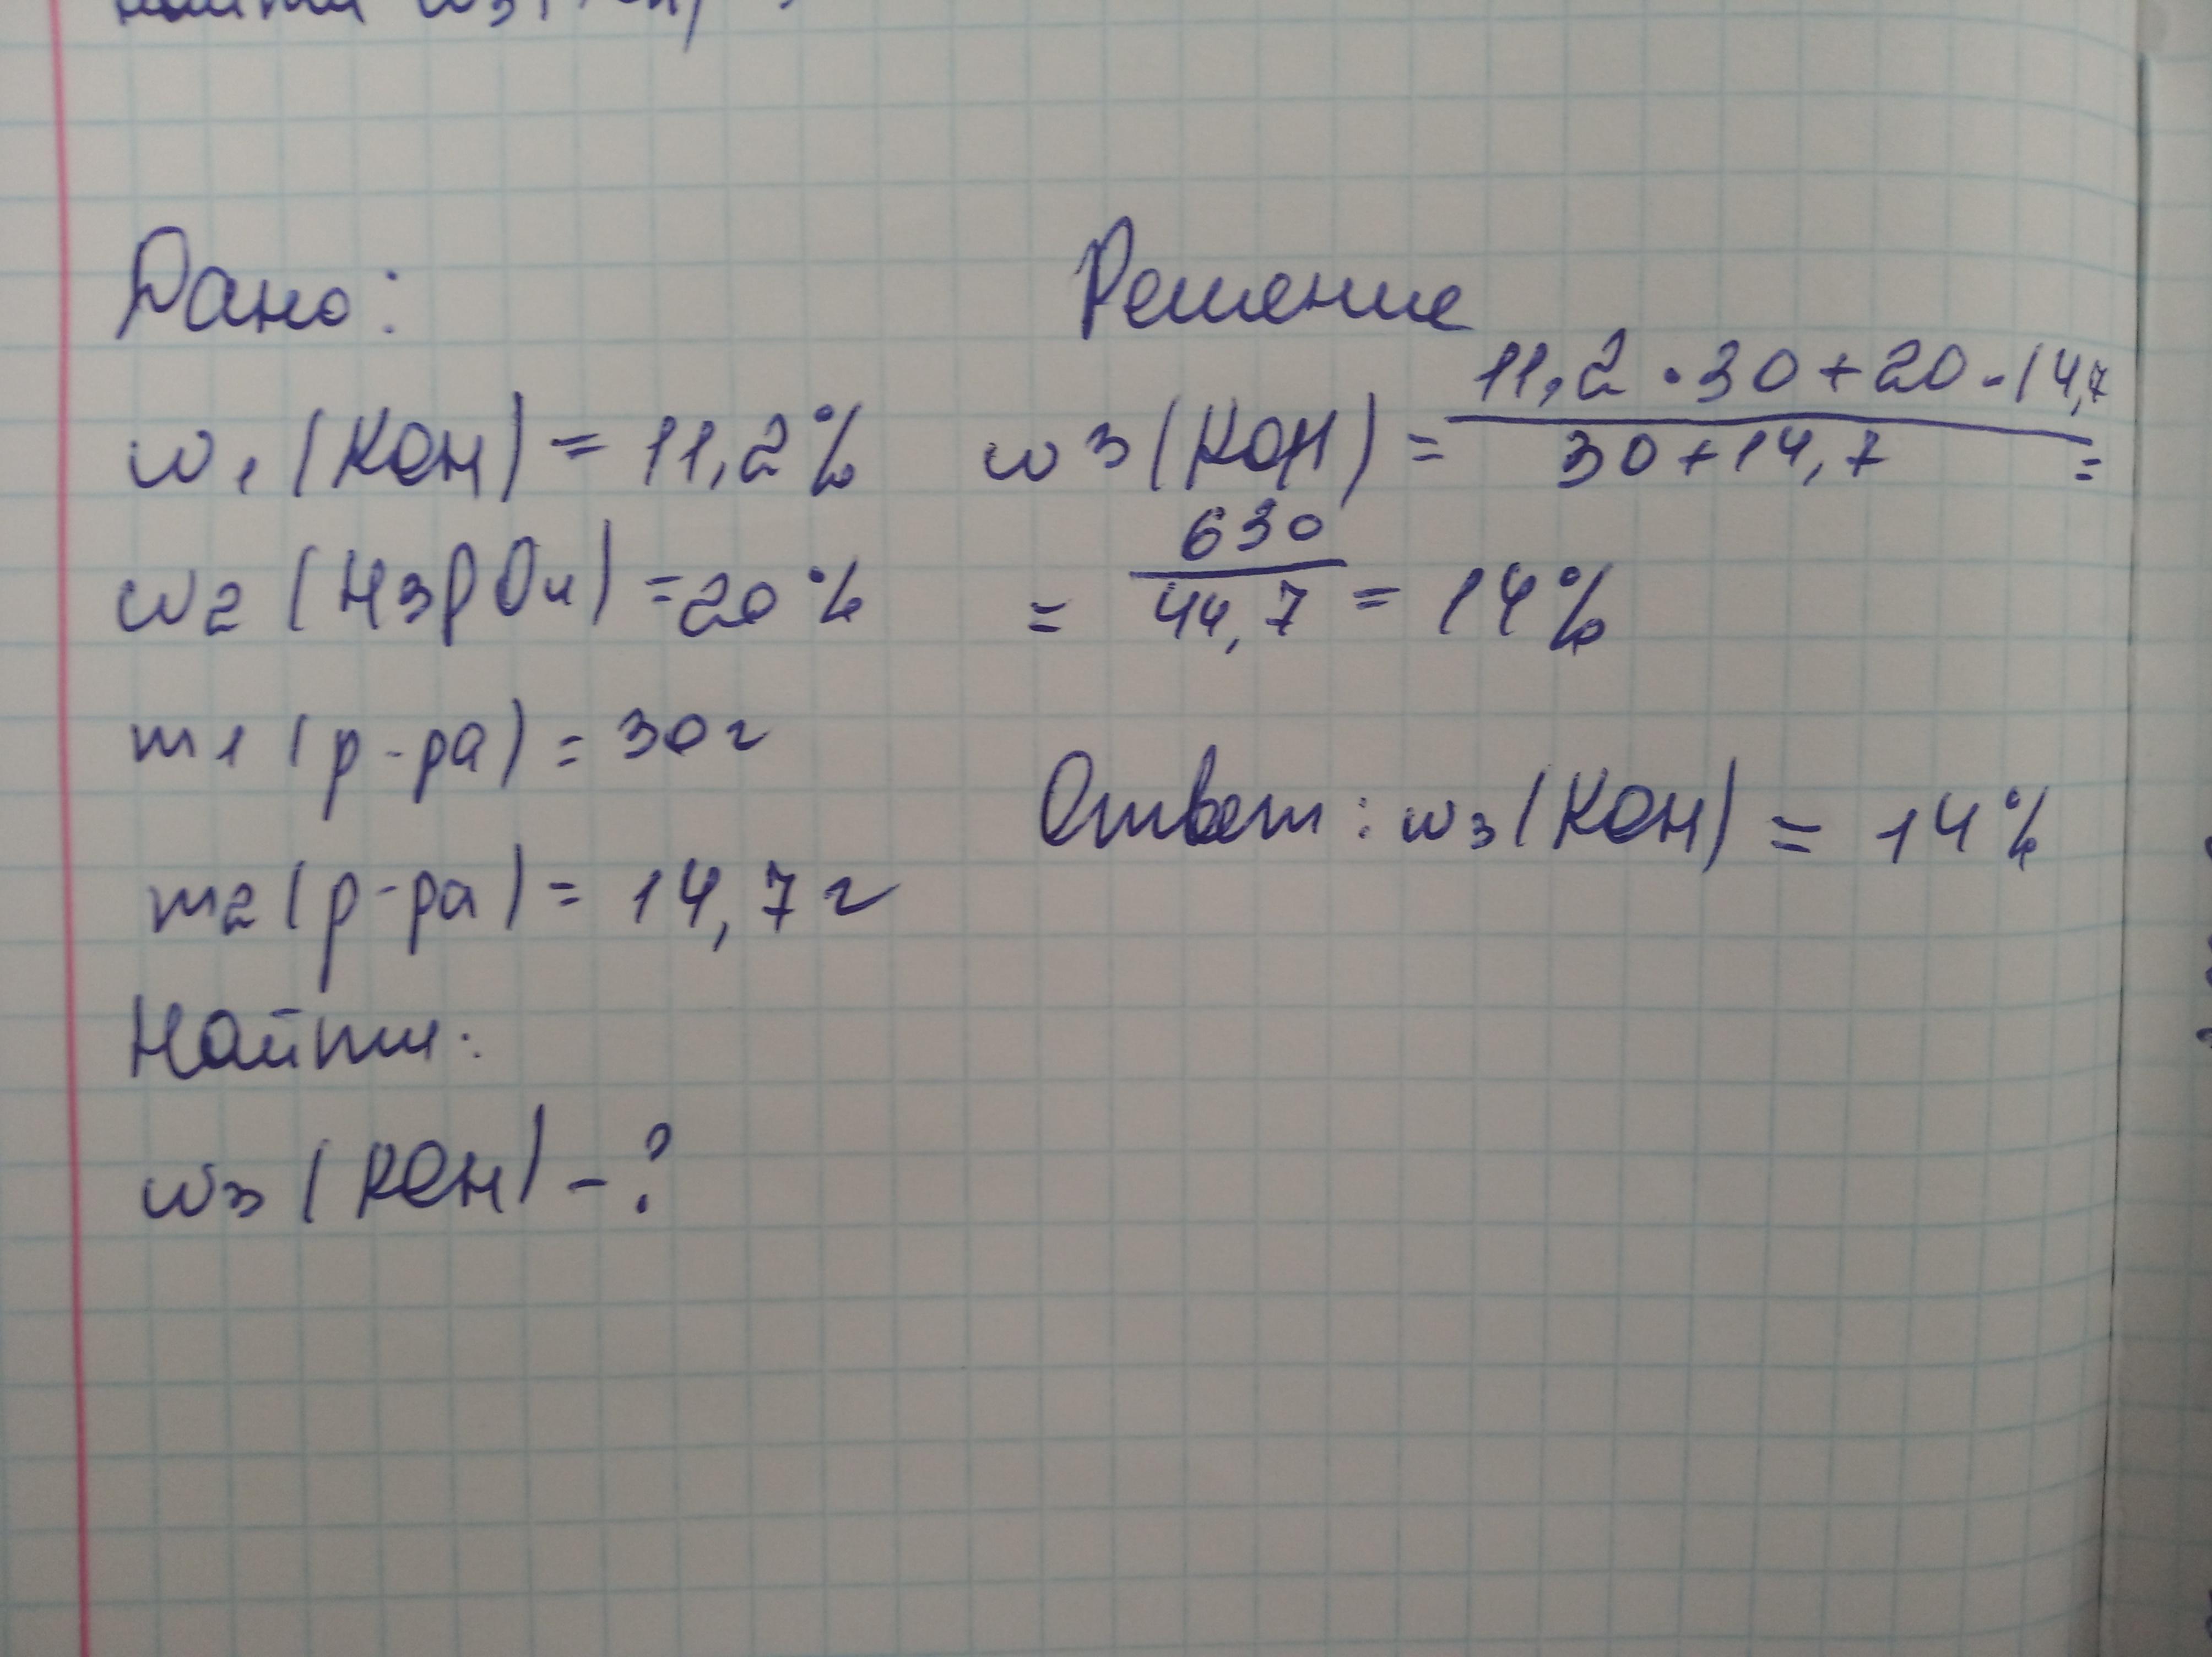 Дано:
w1 (KOH) = 11,2%
w2 (H3PO4) = 20%
m1 (р-ра) = 30г
m2 (р-ра) = 14,7г
Найти:
w3 (KOH) - ?
Решение
w3 (KOH) = 11,2 · 30 + 20 · 14,7
30 + 14,7 =
= 630
44,7 = 14%
Ответ: w3 (KOH) = 14%